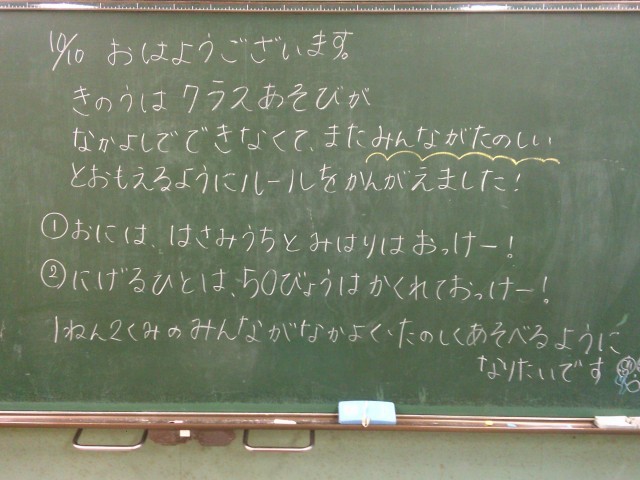 10/10 おはようございます。
きのうは クラスあそびが
なかよしでできなくて、また みんながたのしい
とおもえるようにルールをかんがえました!
①おには、はさみうちとみはりはおっけー!
②にげるひとは、50びょうはかくれておっけー!
1ねん2くみのみんながなかよく・たのしくあそべるように
なりたいです